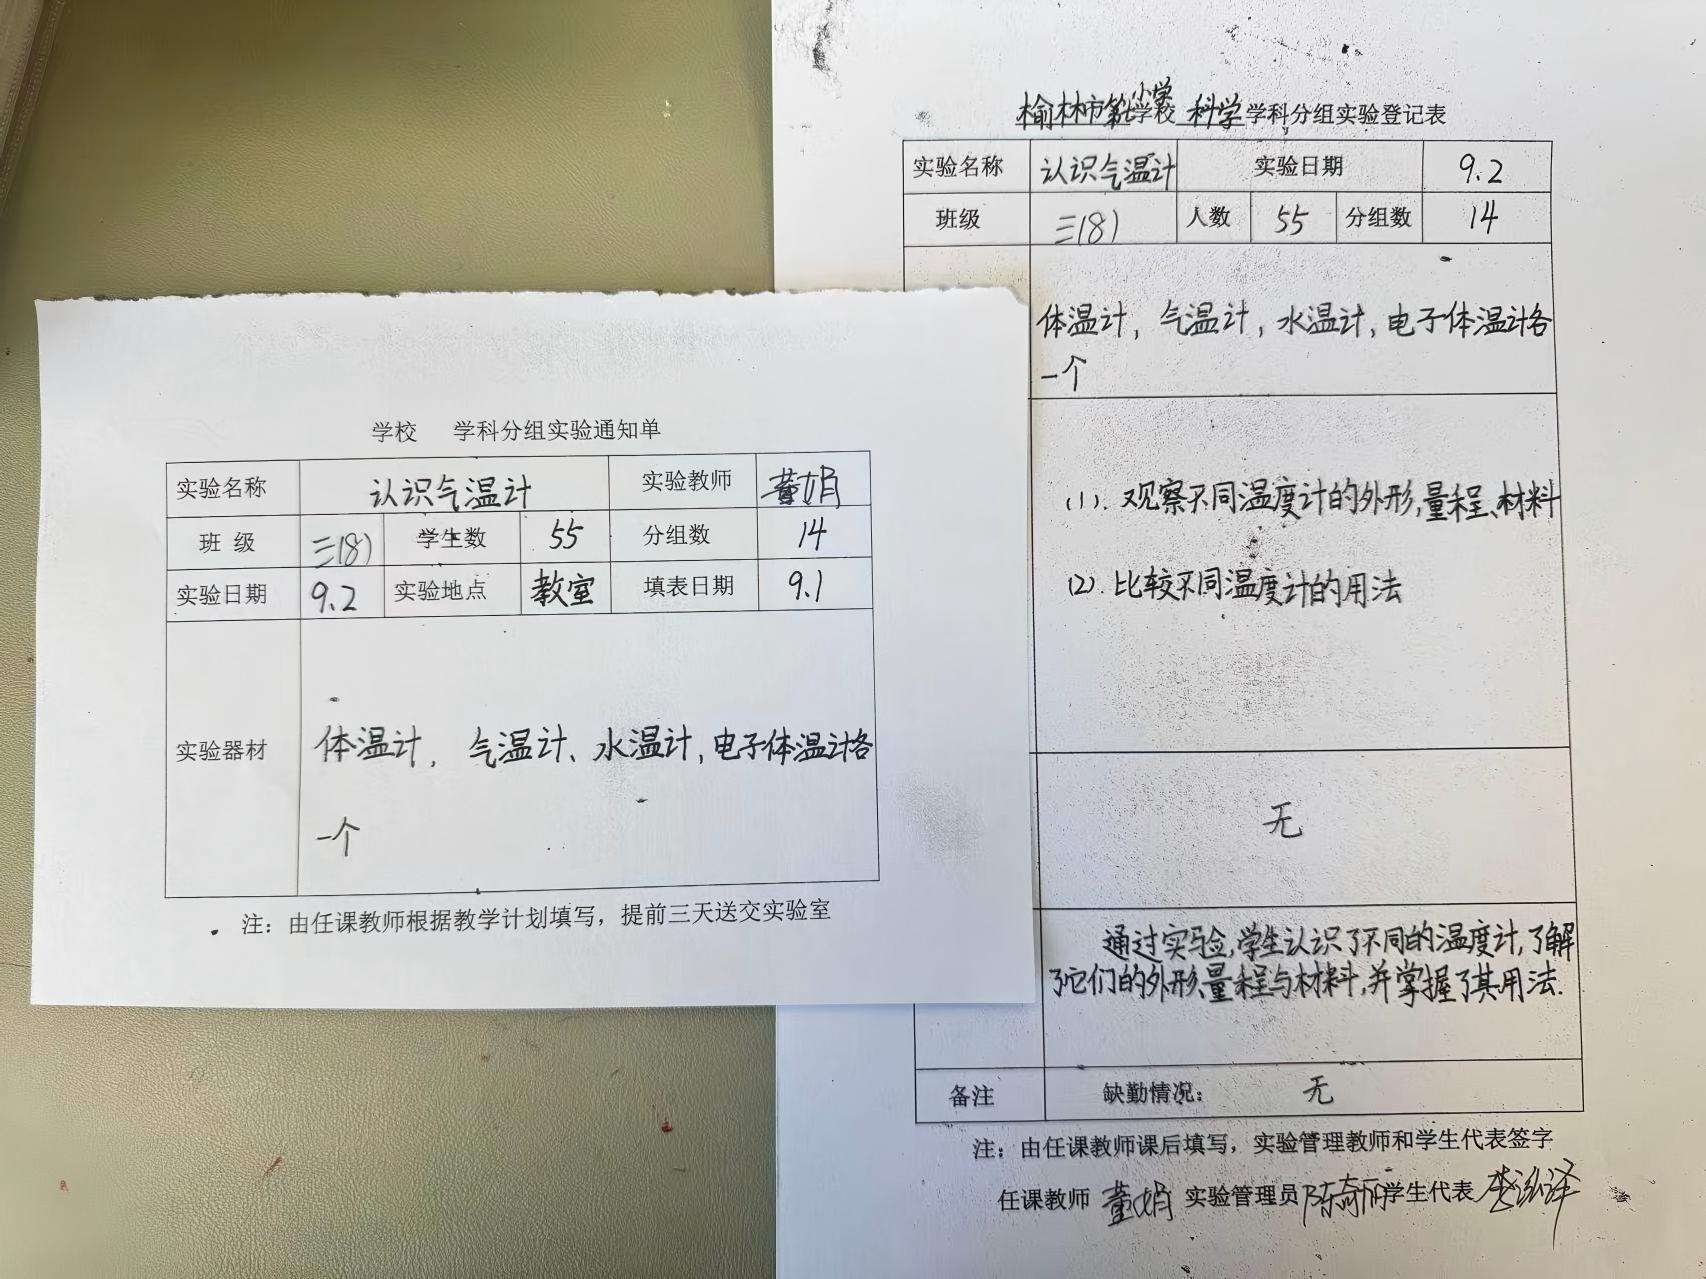 学校 学科分组实验通知单
实验名称 认识气温计 实验教师 董娟
班 级 三(8) 学生数 55 分组数 14
实验日期 9.2 实验地点 教室 填表日期 9.1
实验器材 体温计, 气温计、水温计, 电子体温计各
一个
注：由任课教师根据教学计划填写，提前三天送交实验室
榆林市第 小学 学校 科学 学科分组实验登记表
实验名称 认识气温计 实验日期 9.2
班级 三(8) 人数 55 分组数 14
体温计, 气温计, 水温计, 电子体温计各
一个
(1). 观察不同温度计的外形,量程、材料
(2). 比较不同温度计的用法
无
通过实验,学生认识了不同的温度计,了解
了它们的外形、量程与材料,并掌握了其用法.
备注 缺勤情况： 无
注：由任课教师课后填写，实验管理教师和学生代表签字
任课教师 董娟 实验管理员 陈奇 学生代表